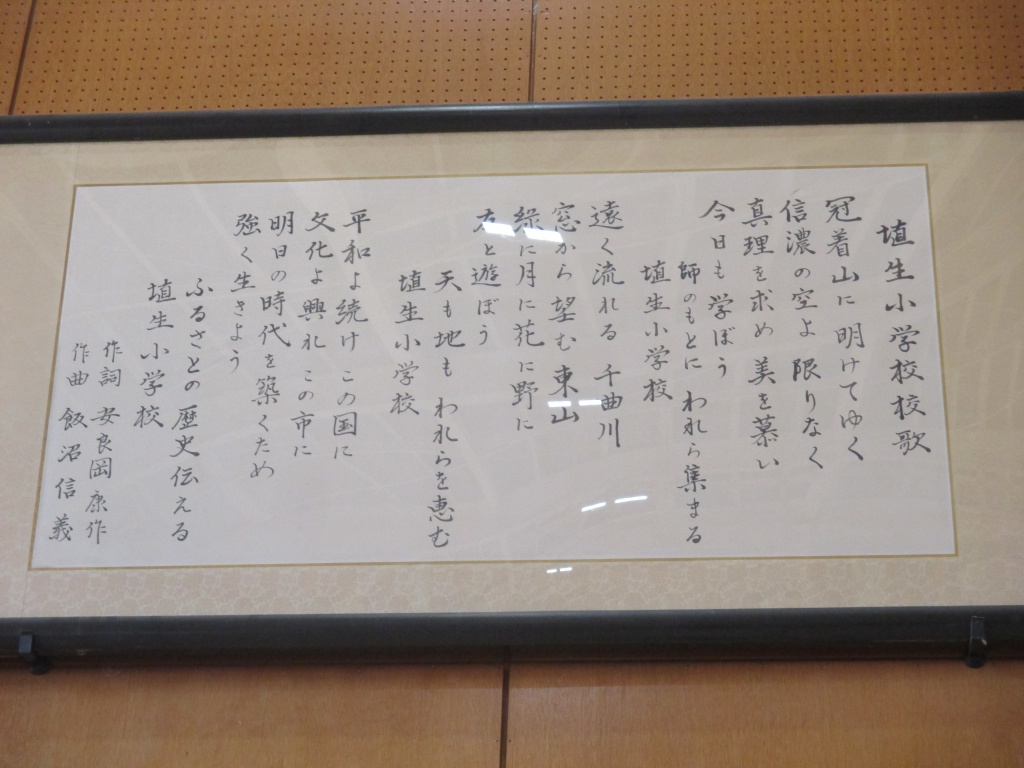 埴生小学校校歌
冠着山に 明けてゆく
信濃の空よ 限りなく
真理を求め 美を慕い
今日も学ぼう
師のもとに われら集まる
埴生小学校
遠く流れる 千曲川
窓から望む 東山
緑に月に 花に野に
友と遊ぼう
天も地も われらを恵む
埴生小学校
平和よ続け この国に
文化よ興れ この市に
明日の時代を 築くため
強く生きよう
ふるさとの 歴史伝える
埴生小学校
作詞 安良岡康作
作曲 飯沼信義